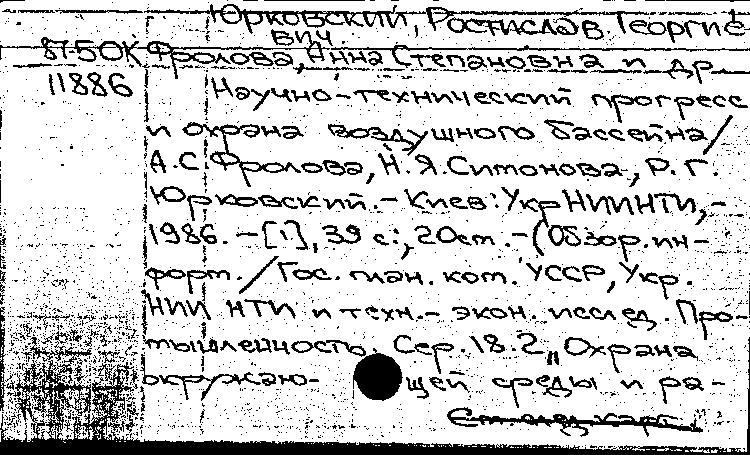 Юрковский, Ростислав Георгие-
вич.
87-5ОК Фролова, Анна Степановна и др.
11886 Научно-технический прогресс
и охрана воздушного бассейна/
А.С. Фролова, Н.Я. Симонова, Р.Г.
Юрковский.-Киев: УкрНИИНТИ,-
1986.-[1], 39 с.; 20см.-(Обзор. ин-
форм./Гос. план. ком. УССР, Укр.
НИИ НТИ и техн.- экон. исслед. Про-
мышленность. Сер. 18.2 „Охрана
окружаю- щей среды и ра-
См. след. карт.